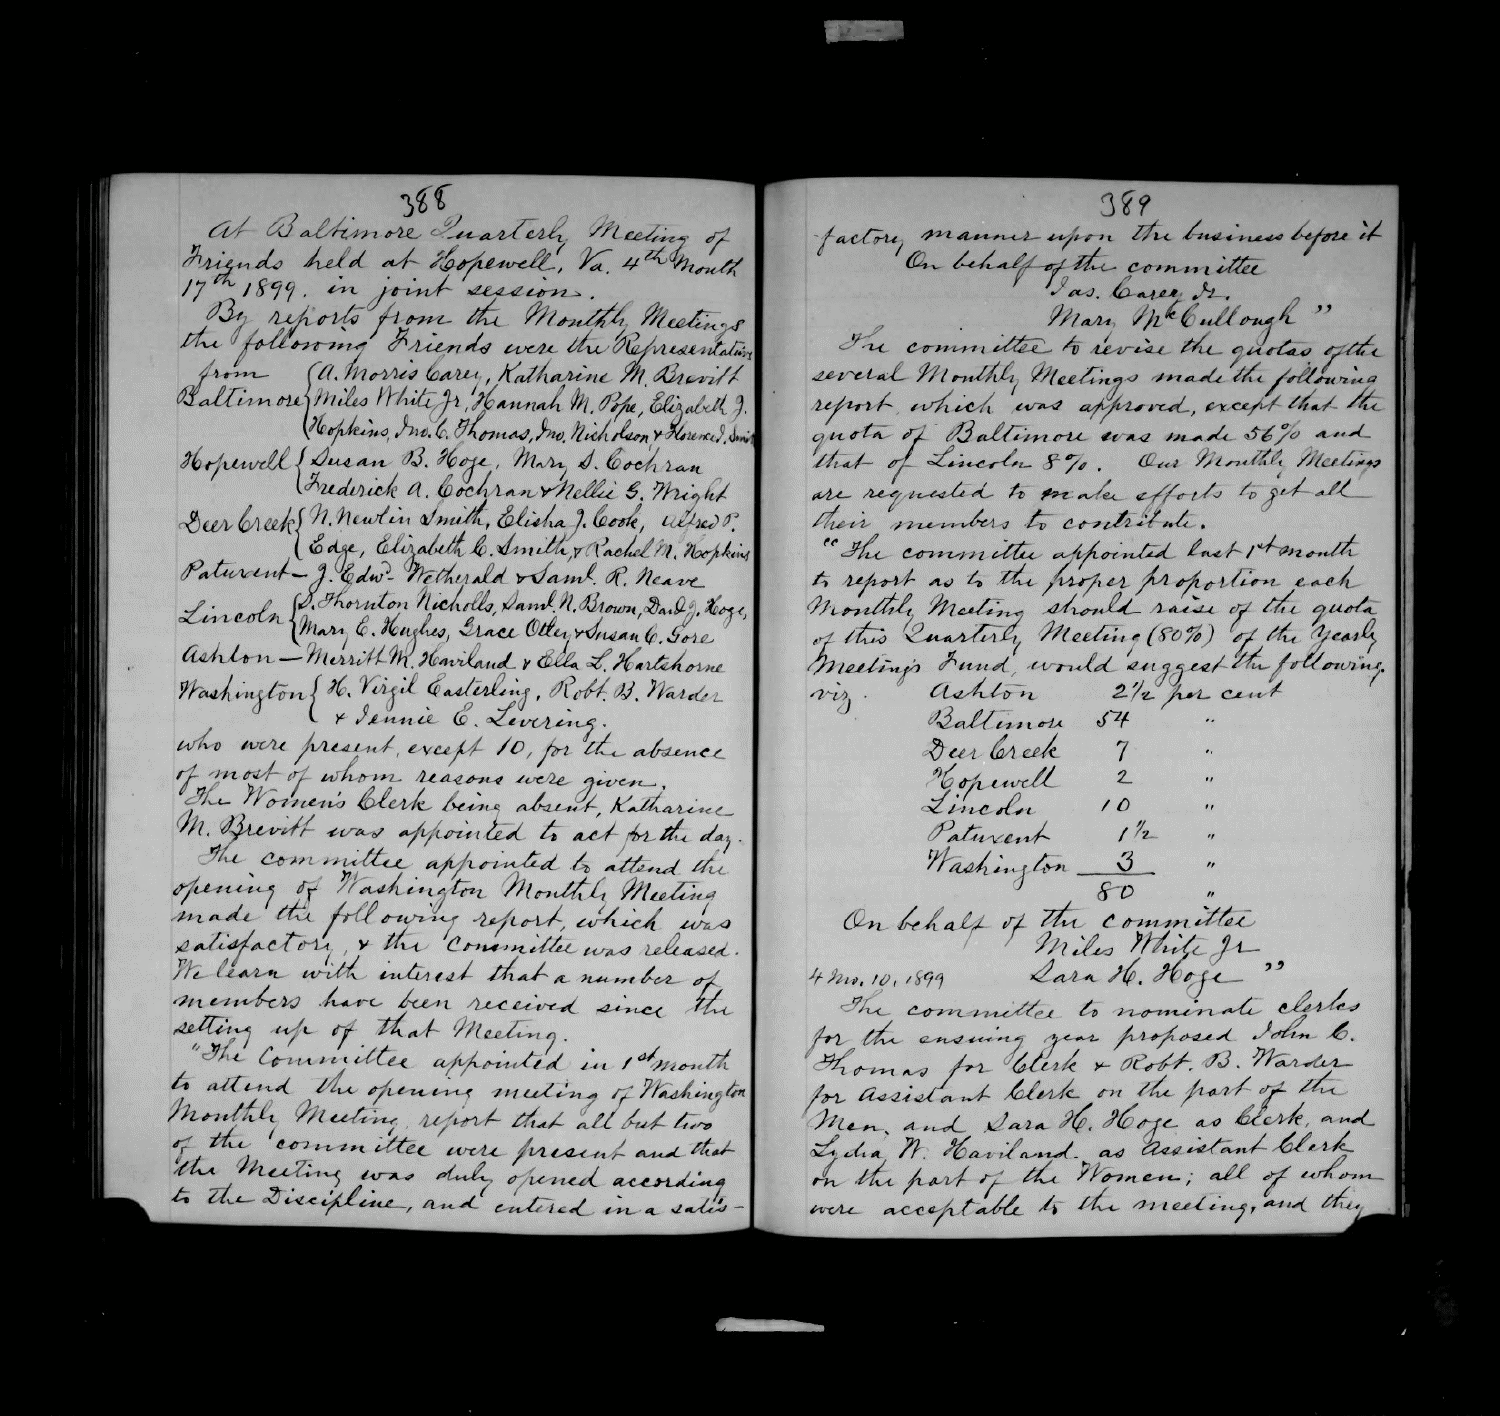 388
At Baltimore Quarterly Meeting of
Friends held at Hopewell, Va. 4th Month
17th 1899. in joint session.
By reports from the Monthly Meetings
the following Friends were the Representatives
from { A. Morris Carey, Katharine M. Brevitt
Baltimore { Miles White Jr, Hannah M. Pope, Elizabeth J.
Hopkins, Jno. C. Thomas, Jno. Nicholson & Florence J. Smith
Hopewell { Susan B. Hoge, Mary S. Cochran
Frederick A. Cochran & Nellie G. Wright
Deer Creek { N. Newlin Smith, Elisha J. Cook, Alfred P.
Edge, Elizabeth C. Smith, & Rachel M. Hopkins
Patuxent — J. Edwd. Wetherald & Saml. R. Neave
Lincoln { S. Thornton Nicholls, Saml. N. Brown, Danl J. Hoge,
Mary E. Hughes, Grace Otley & Susan C. Gore
Ashton — Merritt M. Haviland & Ella L. Hartshorne
Washington { H. Virgil Easterling, Robt. B. Warder
& Jennie E. Levering.
who were present, except 10, for the absence
of most of whom reasons were given.
The Women's Clerk being absent, Katharine
M. Brevitt was appointed to act for the day.
The committee appointed to attend the
opening of Washington Monthly Meeting
made the following report, which was
satisfactory, & the committee was released.
We learn with interest that a number of
members have been received since the
setting up of that Meeting.
"The Committee appointed in 1st month
to attend the opening meeting of Washington
Monthly Meeting, report that all but two
of the committee were present and that
the Meeting was duly opened according
to the Discipline, and entered in a satis-
389
factory manner upon the business before it
On behalf of the committee
Jas. Carey Jr.
Mary McCullough "
The committee to revise the quotas of the
several Monthly Meetings made the following
report, which was approved, except that the
quota of Baltimore was made 56% and
that of Lincoln 8%. Our Monthly Meetings
are requested to make efforts to get all
their members to contribute.
"The committee appointed last 1st month
to report as to the proper proportion each
Monthly Meeting should raise of the quota
of this Quarterly Meeting (80%) of the Yearly
Meeting's Fund, would suggest the following.
viz. Ashton 2 1/2 per cent
Baltimore 54 "
Deer Creek 7 "
Hopewell 2 "
Lincoln 10 "
Patuxent 1 1/2 "
Washington 3 "
80 "
On behalf of the committee
Miles White Jr
4 Mo. 10, 1899 Sara H. Hoge "
The committee to nominate clerks
for the ensuing year proposed John C.
Thomas for Clerk & Robt. B. Warder
for Assistant Clerk on the part of the
Men, and Sara H. Hoge as Clerk, and
Lydia W. Haviland. as Assistant Clerk
on the part of the Women; all of whom
were acceptable to the meeting, and they